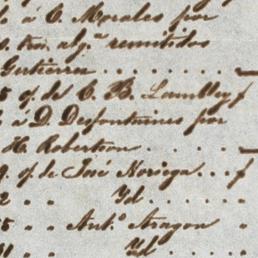 à C. Morales por
alg.ª remitidos
Gutierrez . . . . . . .
5 q.f de C. B. Lumlley f
à D. Desfontaines por
H. Robertson . . . . .
9 q.f de José Noriega . . . f
2 " " Yd . . . . "
5 " " Ant.º Aragon "
31 " " Yd . . . . "